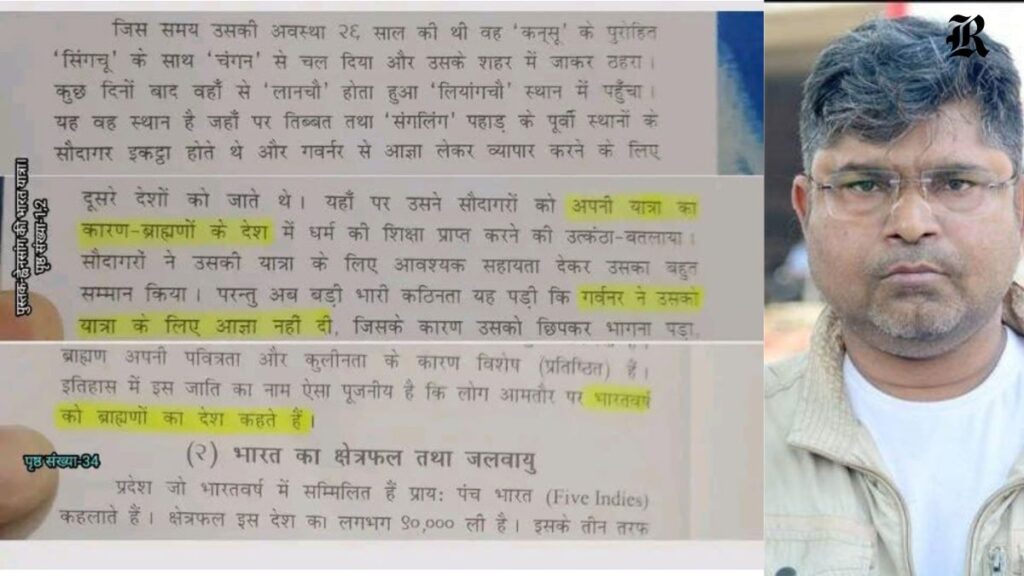 जिस समय उसकी अवस्था २६ साल की थी वह ‘कन्सू’ के पुरोहित
‘सिंगचू’ के साथ ‘चंगन’ से चल दिया और उसके शहर में जाकर ठहरा।
कुछ दिनों बाद वहाँ से ‘लानचौ’ होता हुआ ‘लियांगचौ’ स्थान में पहुँचा।
यह वह स्थान है जहाँ पर तिब्बत तथा ‘संगलिंग’ पहाड़ के पूर्वी स्थानों के
सौदागर इकट्ठा होते थे और गवर्नर से आज्ञा लेकर व्यापार करने के लिए
दूसरे देशों को जाते थे। यहाँ पर उसने सौदागरों को अपनी यात्रा का
कारण-ब्राह्मणों के देश में धर्म की शिक्षा प्राप्त करने की उत्कंठा-बतलाया।
सौदागरों ने उसकी यात्रा के लिए आवश्यक सहायता देकर उसका बहुत
सम्मान किया। परन्तु अब बड़ी भारी कठिनता यह पड़ी कि गर्वनर ने उसको
यात्रा के लिए आज्ञा नहीं दी, जिसके कारण उसको छिपकर भागना पड़ा,
पुस्तक-ह्वेनसांग की भारत यात्रा।
पृष्ठ संख्या-1,2
ब्राह्मण अपनी पवित्रता और कुलीनता के कारण विशेष (प्रतिष्ठित) हैं।
इतिहास में इस जाति का नाम ऐसा पूजनीय है कि लोग आमतौर पर भारतवर्ष
को ब्राह्मणों का देश कहते हैं।
पृष्ठ संख्या-34
(२) भारत का क्षेत्रफल तथा जलवायु
प्रदेश जो भारतवर्ष में सम्मिलित हैं प्राय: पंच भारत (Five Indies)
कहलाते हैं। क्षेत्रफल इस देश का लगभग ९०,००० ली है। इसके तीन तरफ
R